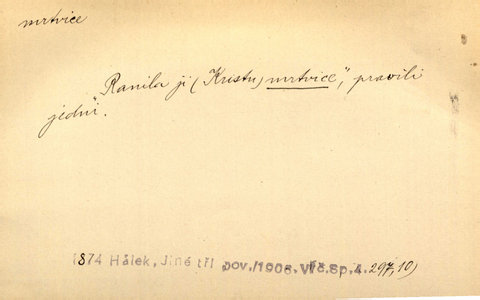 mrtvice
„Ranila ji (Kristu) mrtvice“, pravili
jedni.
1874 Hálek, Jiné tři pov./1906. Vlč.Sp.4. 297,10)